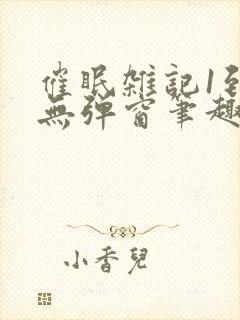 催眠雑記1到
無彈窗筆趣
小香兒